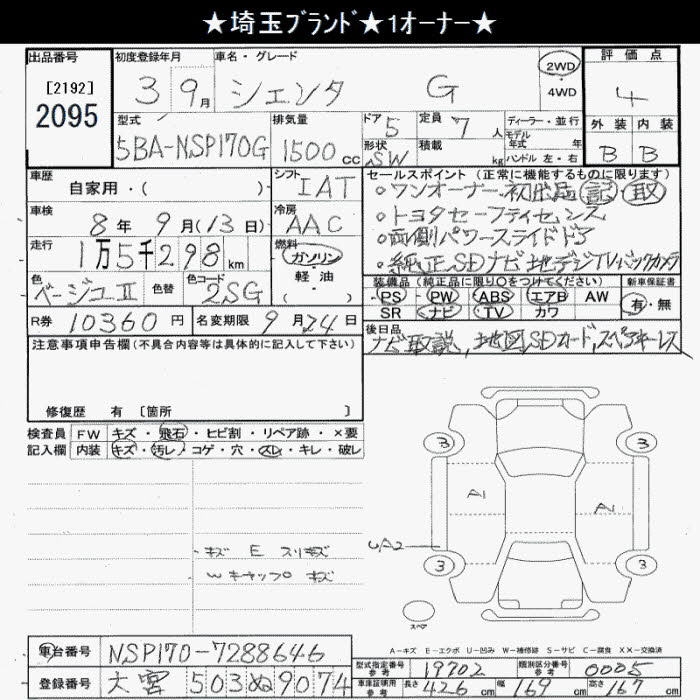 ★埼玉ﾌﾞﾗﾝﾄﾞ★1オーナー★
出品番号
[2192]
2095
初度登録年月
3 9月
車名・グレード
シエンタ G
2WD
・
4WD
評価点
4
外装 内装
B B
型式
5BA-NSP170G
排気量
1500cc
ドア
5
形状
SW
定員
7人
積載
kg
ディーラー・並行
モデル年式 年
ハンドル 左・右
車歴
自家用・( )
シフト
IAT
セールスポイント (正常に機能するものに限ります)
・ワンオーナー 初出品 記・取
・トヨタセーフティセンス
・両側パワースライドドア
・純正SDナビ地デジTVバックカメラ
車検
8年 9月(13日)
冷房
AAC
走行
1万5千298km
燃料
ガソリン
・
軽油
・( )
色
ベージュⅡ
色替
色コード
2SG
装備品 (純正品に限り○をつけてください)
PS・PW・ABS・エアB・AW
SR ナビ・TV・カワ
新車保証書
有・無
R券 10360円
名変期限 9月24日
後日品
ナビ取説,地図,SDカード,スペアキーレス
注意事項申告欄(不具合内容等は具体的に記入して下さい)
修復歴 有 [箇所 ]
検査員
記入欄
FW キズ・飛石・ヒビ割・リペア跡・×要
内装 キズ・汚レ・コゲ・穴・スレ・キレ・破レ
キズ E スリキズ
Wキャップ キズ
3 3
A1 A2
UA2
3 3
スペア
A－キズ E－エクボ U－凹み W－補修跡 S－サビ C－腐食 XX－交換済
車台番号 NSP170-7288646
登録番号 大宮 503ぬ9074
型式指定番号
参考
19702
類別区分番号
参考
0005
車庫証明用
参考
長さ 426cm 幅 169cm 高さ 167cm